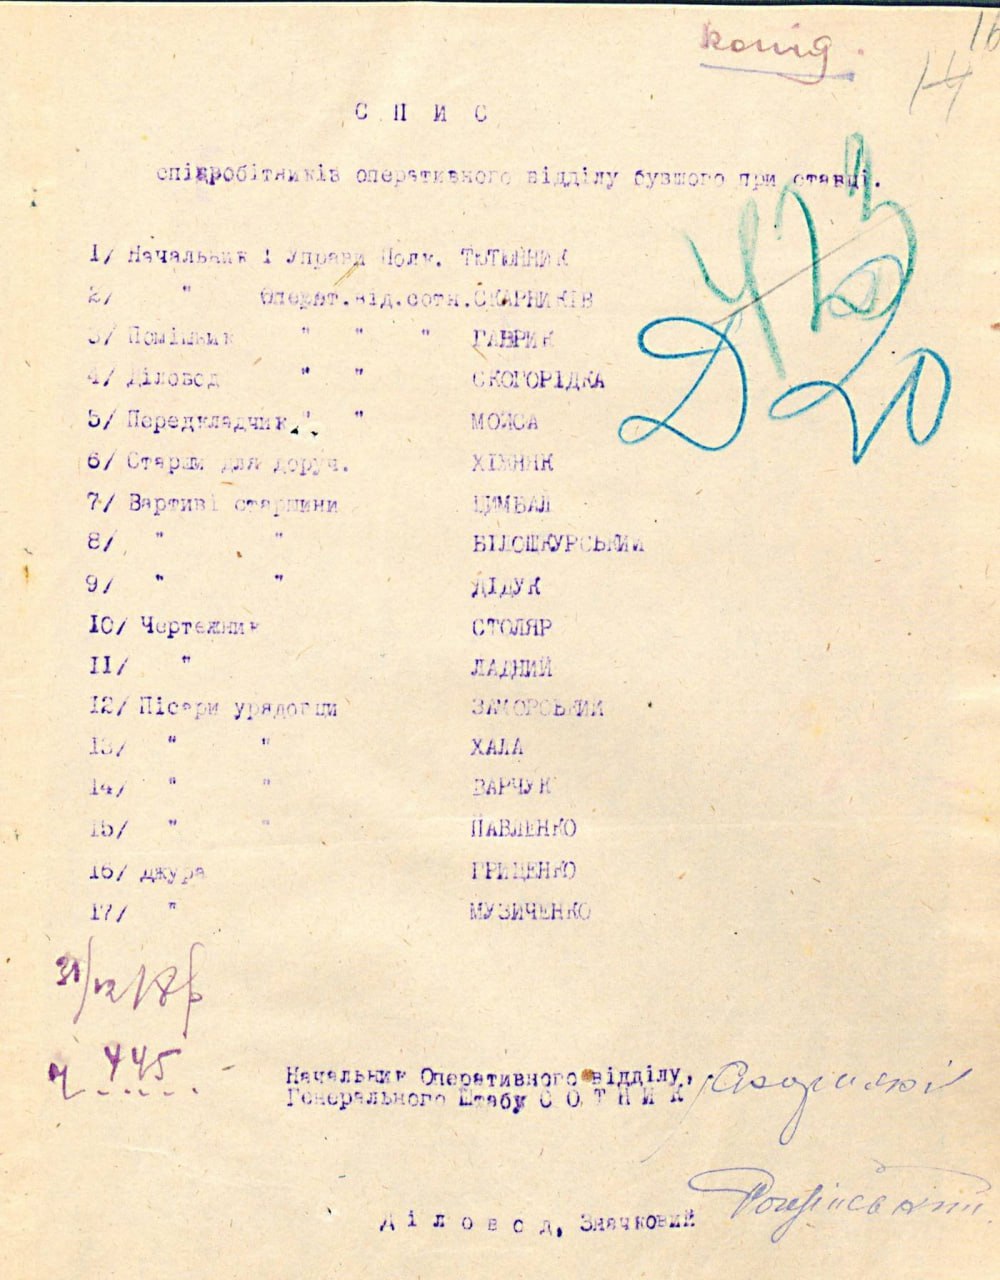 копія
16
14
С П И С
співробітників оперативного відділу бувшого при ставці.
1/ Начальник 1 Управи Полк. ТЮТЮННИК
2/ " Операт.від.сотн.СКАРНИКІВ
3/ Помішник " " " ГАВРИК
4/ Діловод " " СКОГОРІДКА
5/ Передкладчик " " МОЙСА
6/ Старши для доруч. ХІЖНЯК
7/ Вартиві старшини ЦИМБАЛ
8/ " " БІЛОШКУРСЬКИЙ
9/ " " ДІДУК
10/ Чертежник СТОЛЯР
11/ " ЛАДНИЙ
12/ Пісари урядовци ЗАМОРСЬКИЙ
13/ " " ХАЛА
14/ " " ВАРЧУК
15/ " " ПАВЛЕНКО
16/ джура ГРИЦЕНКО
17/ " МУЗИЧЕНКО
31/12 18 р
ч 445
Начальник Оперативного відділу,
Генерального Штабу С О Т Н И К
Д і л о в о д, Значковий